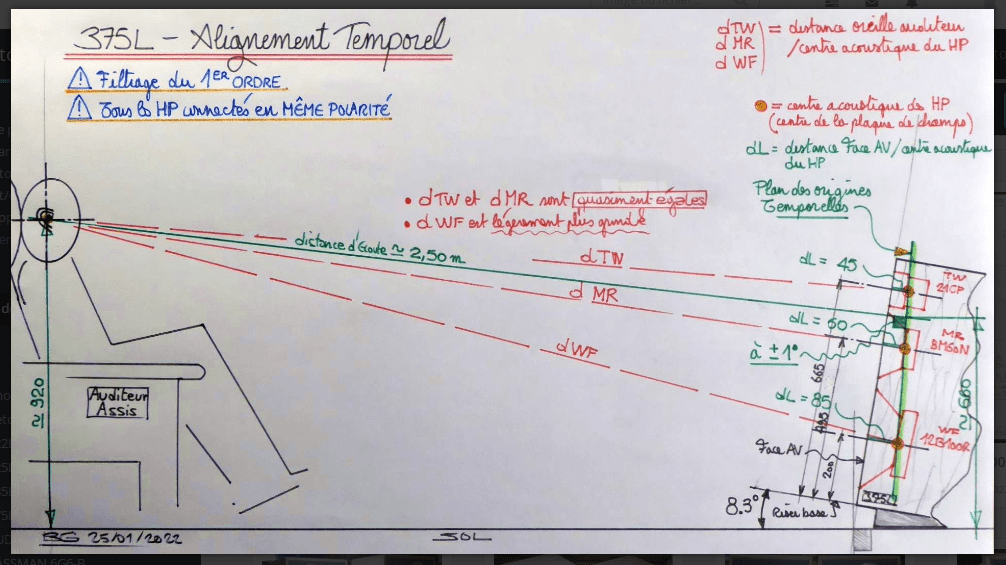 375L - Alignement Temporel
⚠ Filtrage du 1ER ORDRE
⚠ Tous les HP connectés en MÊME POLARITÉ
dTW
dMR
dWF
= distance oreille auditeur
/centre acoustique du HP
= centre acoustique des HP
(centre de la plaque de champs)
dL = distance Face AV/centre acoustique
du HP
Plan des origines
Temporelles
• dTW et dMR sont quasiment égales
• dWF est légèrement plus grande
distance d'écoute ≈ 2,50m
dTW
dMR
dWF
dL = 45
TW
21CP
dL = 60
MR
BM60N
à ±1°
665
dL = 85
495
WF
12B100R
≈ 680
≈ 920
Auditeur
Assis
Face AV
200
375L
8.3°
Riser base
BG 25/01/2022
SOL